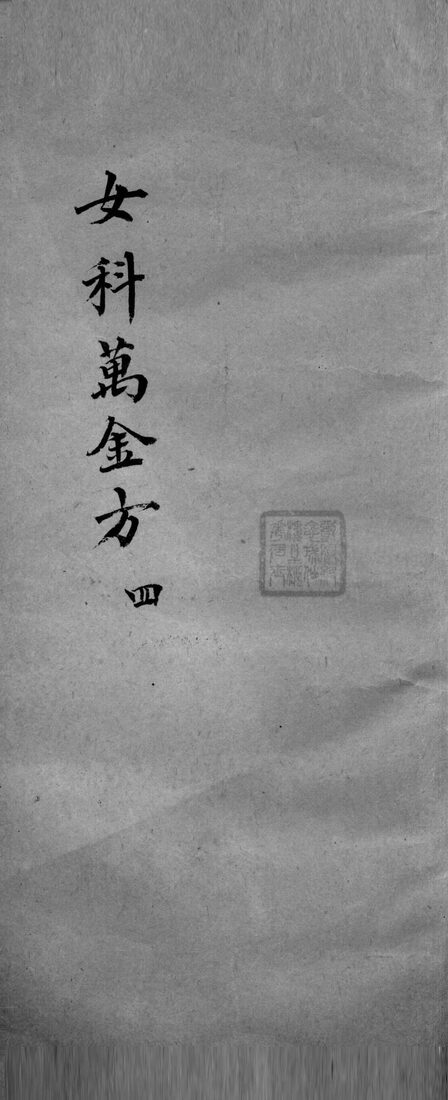 女科萬金方 四